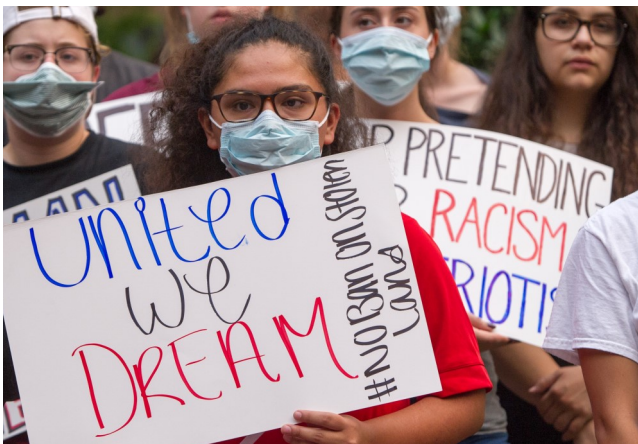 United
We
DREAM
#NO BAN ON Stolen
Land
PRETENDING
RACISM